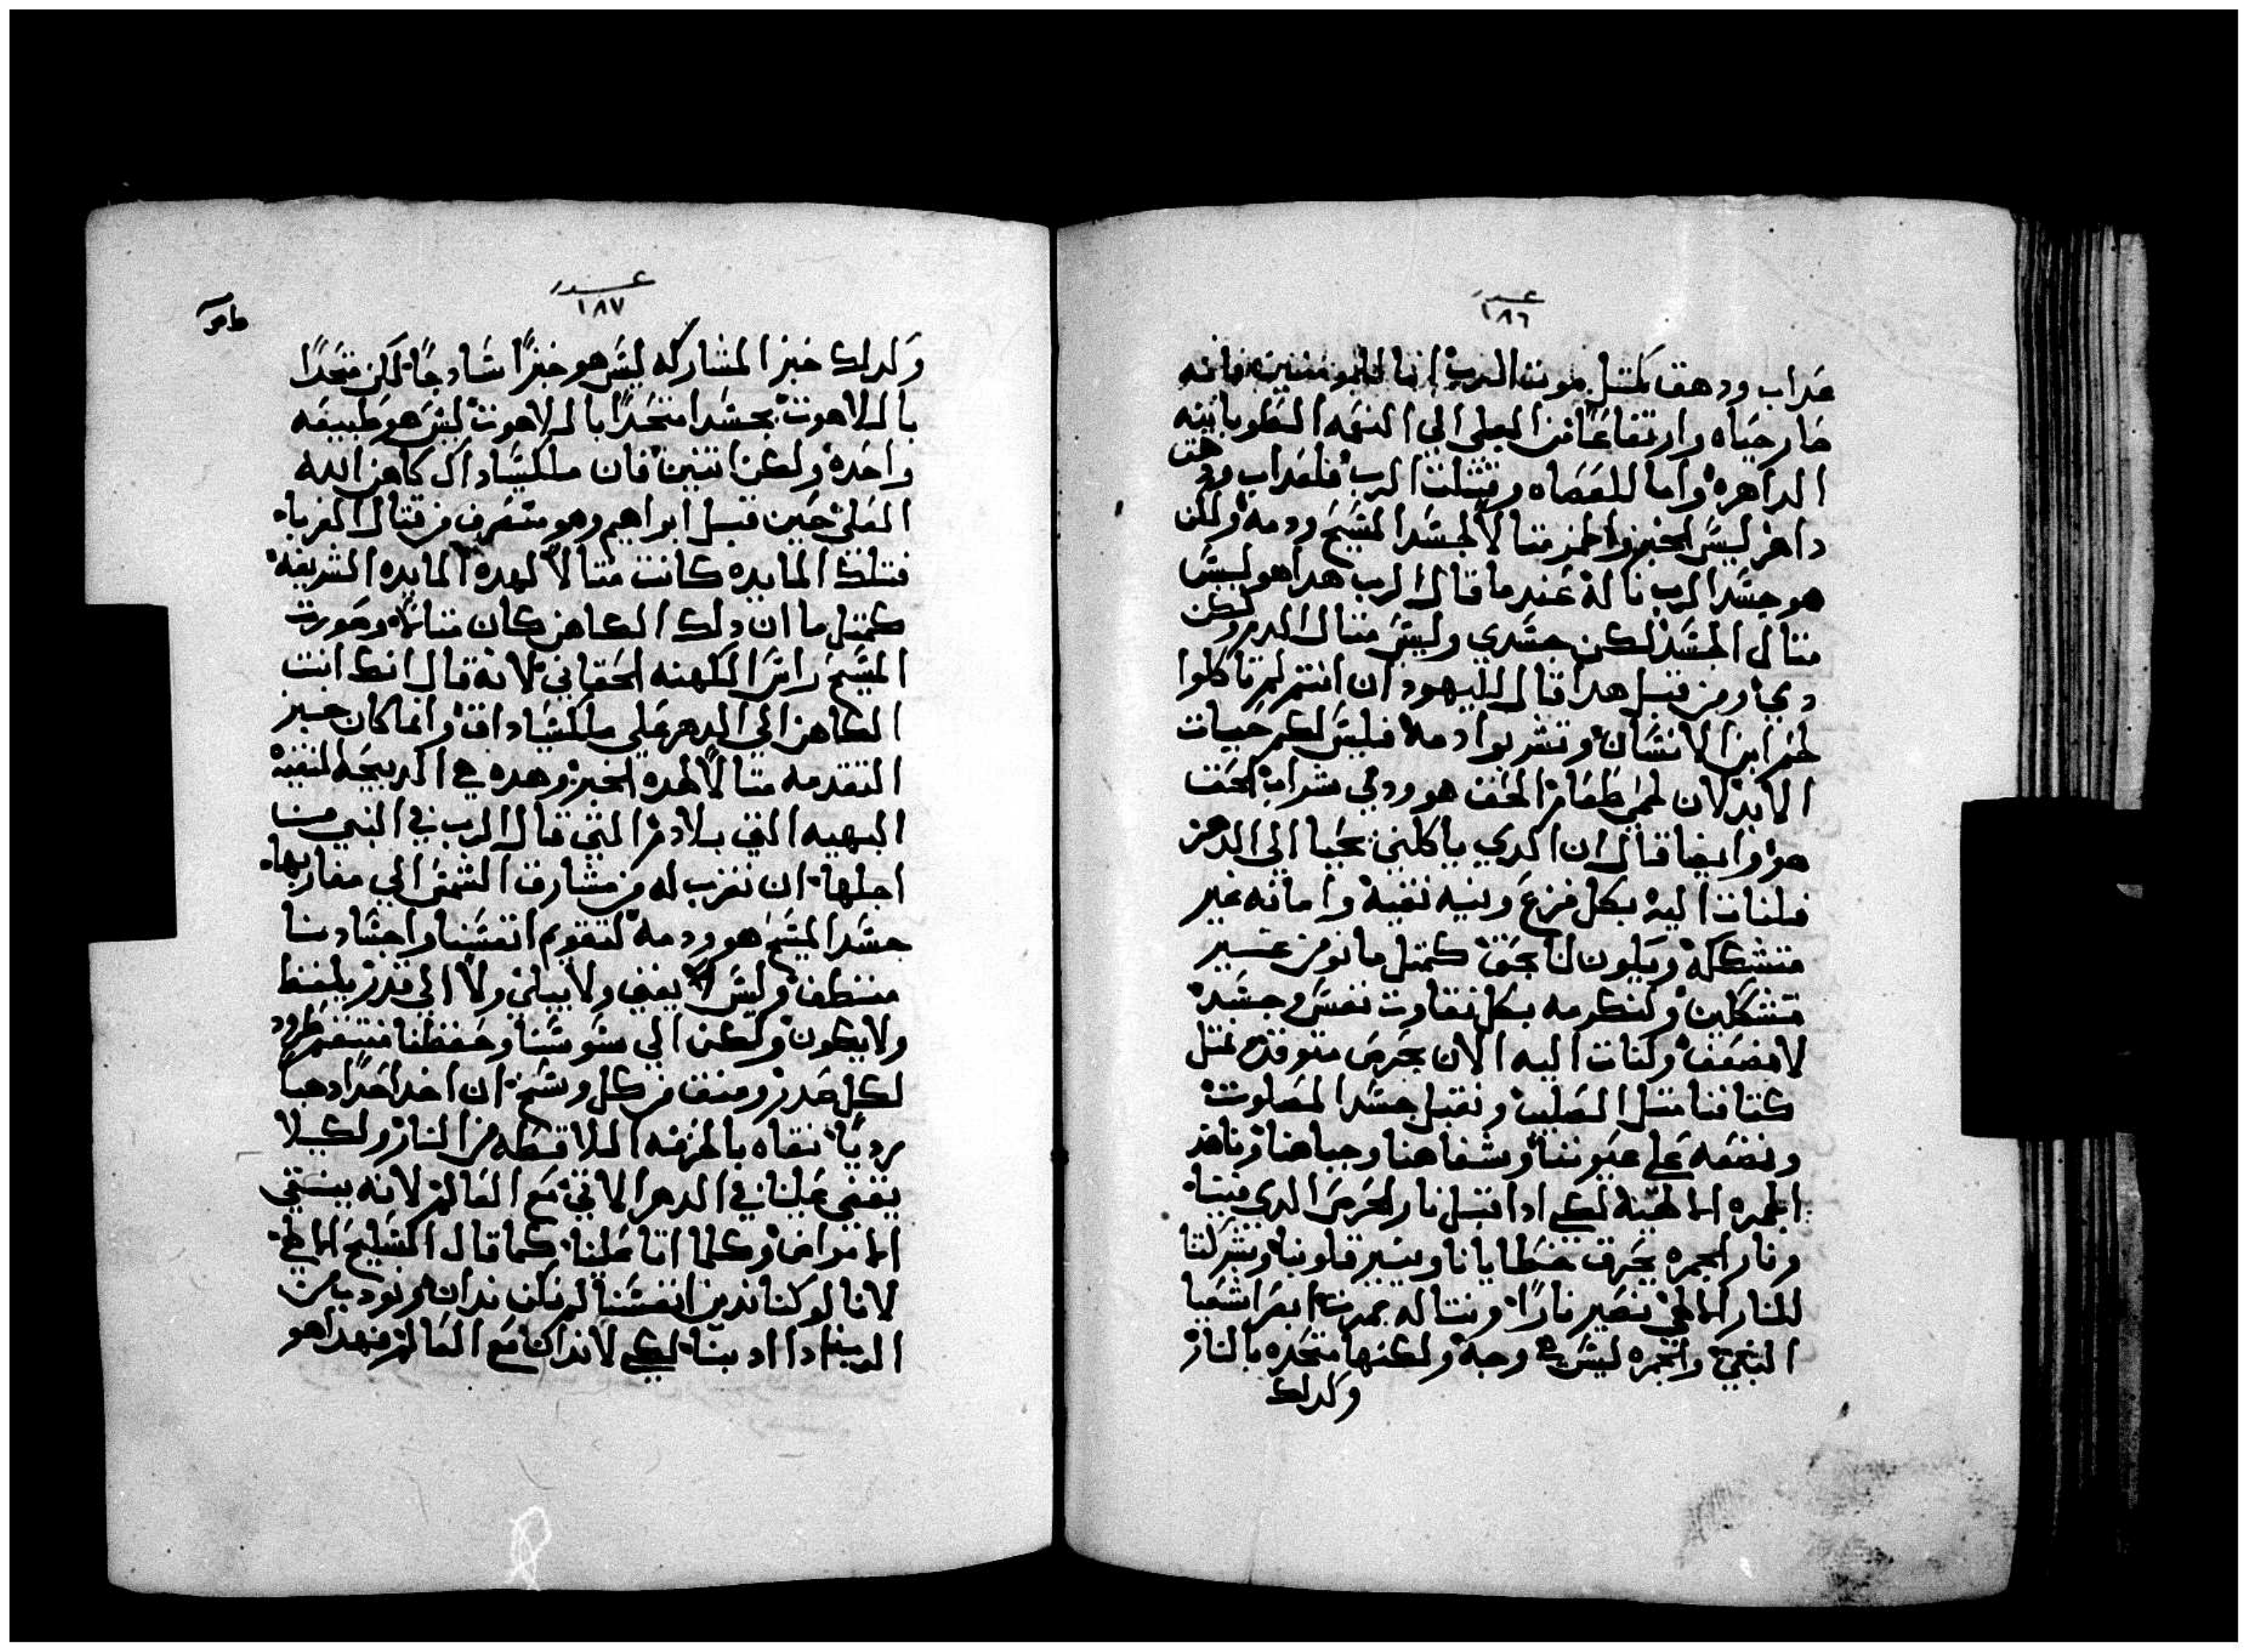 عدد
١٨٦
عداب ودهق كمتل موت الرب انا للمومنين فانه
صار حياه وارتفاعا من البلى الي النعمه الطوبانيه
الداهره واما للعصاه وقتلت الرب فلعداب ودهق
داهر ليس الخبز والخمر متالا لجسد المسيح ودمه ولكن
هو جسد الرب تاله عندما قال الرب هدا هو ليس
متال الجسد لكن جسدي وليس متال الدم ولكن
دمي ومن قبل هدا قال لليهود ان انتم لم تاكلوا
لحم ابن الانسان وتشربوا دمه فليس لكم حيات
الابد لان لحمي طعام الحق هو ودمي شراب الحق
هو وايضا قال ان الدي ياكلني يحيا الي الدهر
فلنات اليه بكل فزع ونيه نقيه وامانه غير
متشككه ويكون لنا بحق كمتل ما نومن غير
متشككين ولنكرمه بكل نقاوت نفس وجسد
لا مضعف ولنات اليه الان بحرص متوقد نمتل
كتافنا متل الصليب ونقبل جسد المصلوب
ونضعه على عيوننا وشفاهنا وجباهنا وناخد
الجمره الالهيه لكي ادا قبل نار الحرص الدي فينا
ونار الجمره يحرق خطايانا وينير قلوبنا وبشركتنا
للنار الالهي نصير نارا ونتاله بمره ابصر اشعيا
النبي والجمره ليس هي وحده ولكنها متحده بالنار
وكدلك
عدد
١٨٧
وكدلك خبز المشاركه ليس هو خبزا سادجا لكن متحدا
باللاهوت بجسدا متحدا باللاهوت ليس هو طبيعه
واحده ولكن اتنين فان ملكيساداق كاهن الله
العلي حين قبل ابراهيم وهو منصرف من قتال الغربا
فتلك المايده كانت متالا لهده المايده الشريفه
كمتل ما ان دلك الكاهن كان متالا وصورت
المسيح راس الكهنه الحقاني لانه قال انك انت
الكاهن الي الدهر على ملكيساداق وانما كان خبز
التقدمه متالا لهده الخبز وهده هي الدبيحه النقيه
البهيه التي بلا دم التي قال الرب في النبي من
اجلها ان تقرب له من مشارق الشمس الي مغاربها
جسد المسيح هو ودمه لتقويم انفسنا واجسادنا
منتطف وليس يفنى ولا يبلى ولا الي قدر يلفظ
ولا يكون ولكن الي سوسنا وحفظنا فتنتقم طرود
لكل ضدر ومنق من كل وسخ ان اخد احدا دهبا
رديا نقاه بالحرقه اللاقطه من النار ولكيلا
يقضى علينا في الدهر الاتي مع العالم لانه ينقي
الامراض وكلما اتا علينا كما قال السليح الالهي
لانا لو كنا ندين انفسنا لم نكن ندان ونودب من
الرب ادا ادبنا لكي لا ندان مع العالم فهدا هو